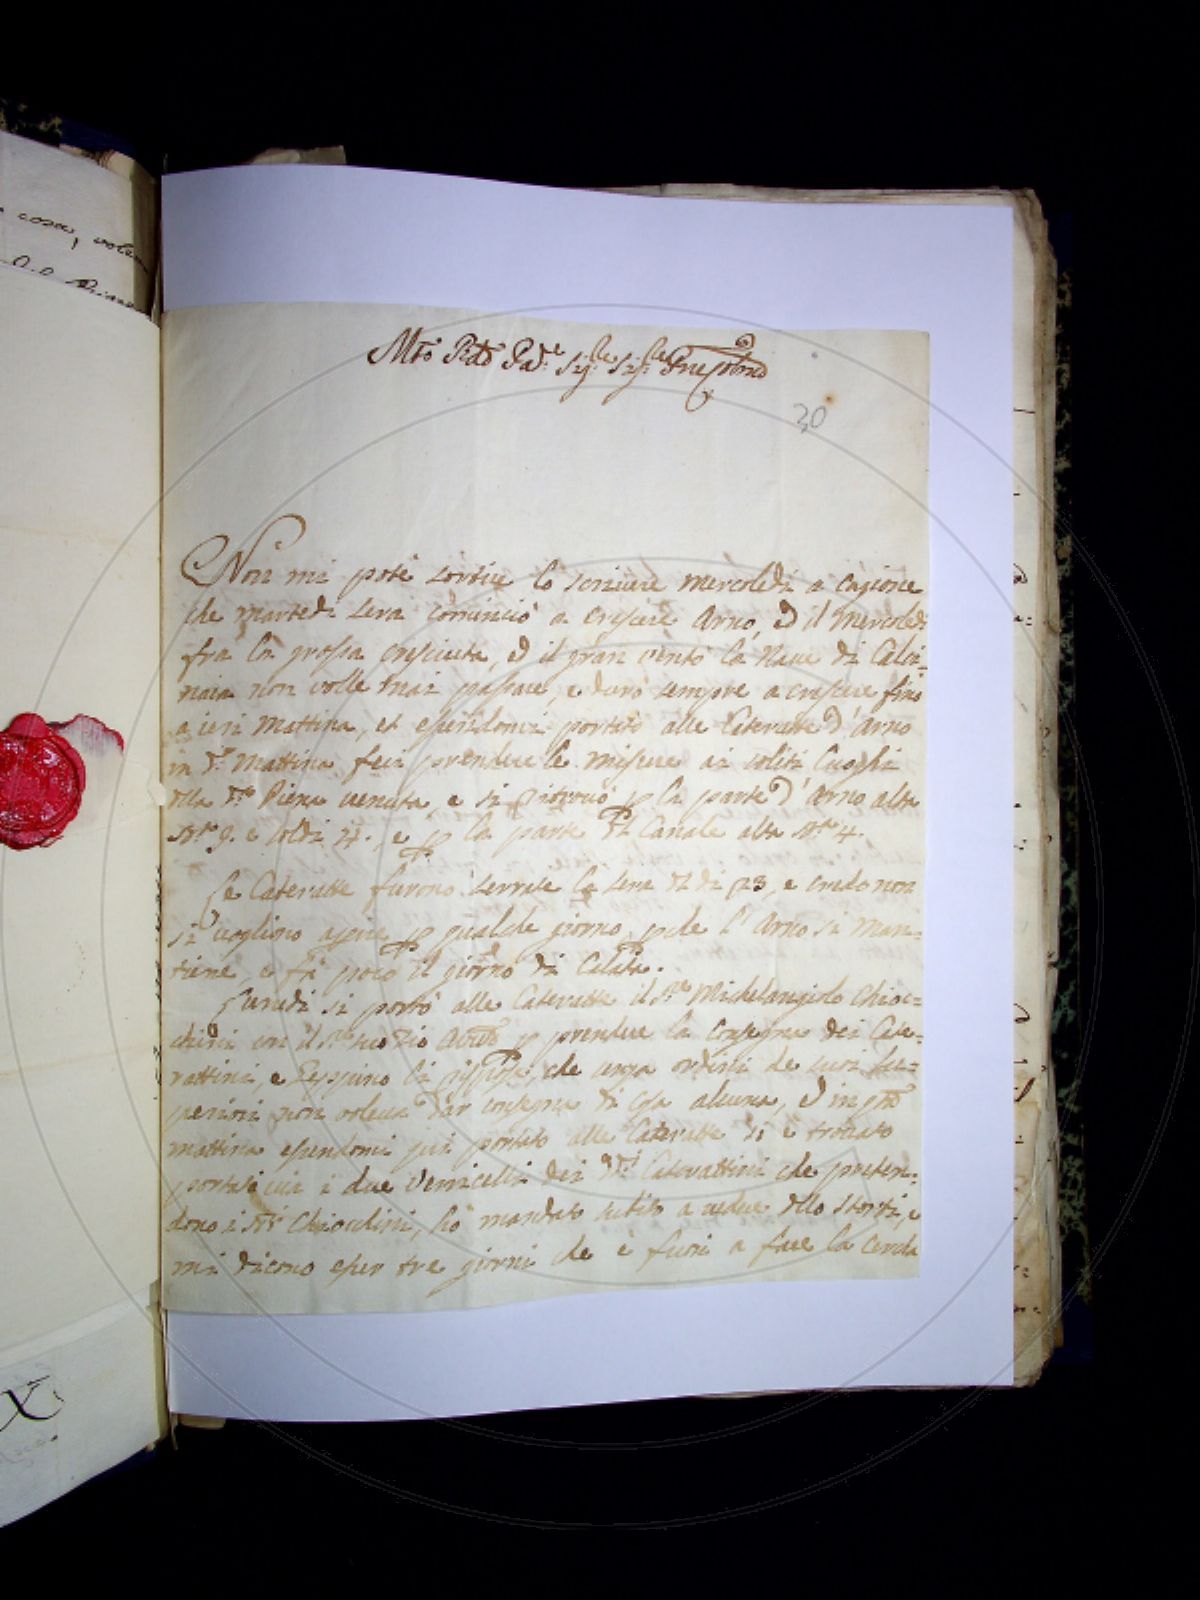 cosa, volen
Mto Rdo Pad.e Sig.re Sig.re Pne
30
Non mi potè sortire lo scrivere mercoledi a cagione
che martedi sera cominciò a crescere Arno, ed il mercoledi
fra la grossa cresciuta, ed il gran vento la Nave di Calci-
naia non volle mai passare, e durò sempre a crescere fino
a ieri Mattina, et essendomi portato alle Caterratte d'Arno
in d.a Mattina feci prendere le misure ai soliti luoghi
della d.a Piena venuta, e si ritrovò p la parte d'Arno alta
Br.a 9. e soldi 4., e p la parte del Canale alta Br.a 4.
Le Cateratte furono serrate la sera del di 23, e credo non
si voglino aprire p qualche giorno, pche l'Arno si man-
tiene, e fà poco il giorno di Calata.
Lunedi si portò alle Cateratte il Sr.e Michelangiolo Chioc-
chini con il Sr.e suo Zio p prendere la Consegna dei Cate-
rattini, e Peppino li rispose, che senza ordini de suoi Su-
periori non voleva dar consegna di cosa alcuna, ed in qta
mattina essendomi qui portato alle Cateratte si è trovato
portati via i due Verricelli dei d.i Caterattini che preten-
dono i Sri Chiocchini, hò mandato subito a vedere dello Storti, e
mi dicono esser tre giorni che è fuori a fare la Cerca